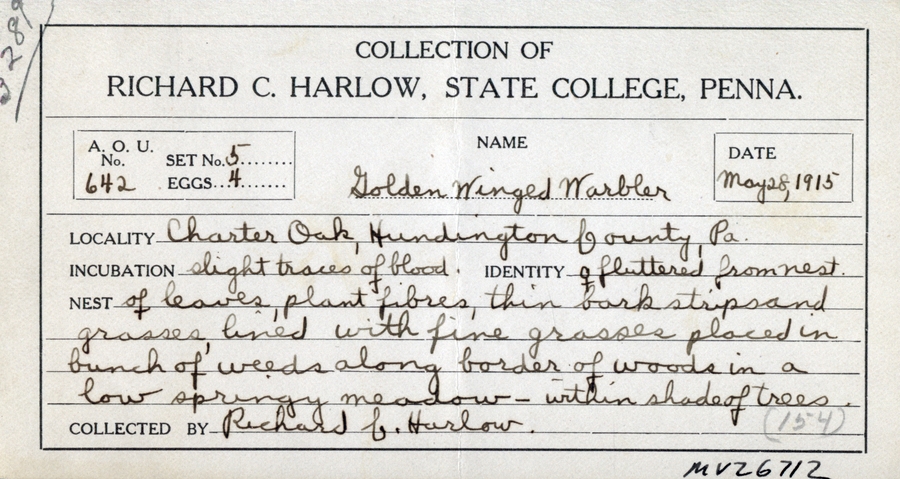 COLLECTION OF
RICHARD C. HARLOW, STATE COLLEGE, PENNA.
A. O. U. No. 642
SET No. 5
EGGS 4
NAME
Golden Winged Warbler
DATE
May 28, 1915
LOCALITY Charter Oak, Hundington County, Pa.
INCUBATION slight traces of blood. IDENTITY ♀ fluttered from nest.
NEST of leaves, plant fibres, thin bark strips and
grasses, lined with fine grasses placed in
bunch of weeds along border of woods in a
low springy meadow - within shade of trees.
COLLECTED BY Richard C. Harlow.
(154)
MVZ6712